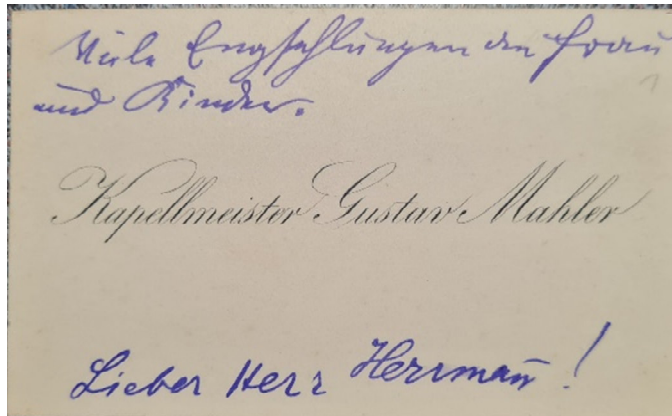 Viele Empfehlungen an Frau
und Kinder.
Kapellmeister Gustav Mahler
Lieber Herr Herrmann!